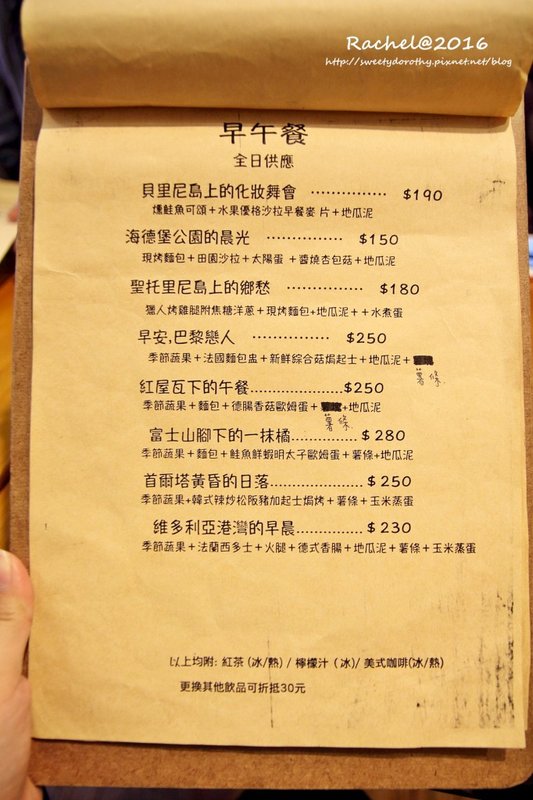 Rachel@2016
http://sweetydorothy.pixnet.net/blog
早午餐
全日供應
貝里尼島上的化妝舞會 ··············· $190
燻鮭魚可頌+水果優格沙拉早餐麥 片+地瓜泥
海德堡公園的晨光 ··············· $150
現烤麵包+田園沙拉+太陽蛋 +醬燒杏包菇+地瓜泥
聖托里尼島上的鄉愁 ··············· $180
獵人烤雞腿附焦糖洋蔥+現烤麵包+地瓜泥++水煮蛋
早安,巴黎戀人 ··············· $250
季節蔬果+法國麵包盅+新鮮綜合菇焗起士+地瓜泥+
薯條
紅屋瓦下的午餐...............$250
季節蔬果+麵包+德腸香菇歐姆蛋+ +地瓜泥
薯條
富士山腳下的一抹橘...............$280
季節蔬果+麵包+鮭魚鮮蝦明太子歐姆蛋+薯條+地瓜泥
首爾塔黃昏的日落...............$250
季節蔬果+韓式辣炒松阪豬加起士焗烤+薯條+玉米蒸蛋
維多利亞港灣的早晨...............$230
季節蔬果+法蘭西多士+火腿+德式香腸+地瓜泥+薯條+玉米蒸蛋
以上均附: 紅茶 (冰/熱) / 檸檬汁 (冰)/ 美式咖啡(冰/熱)
更換其他飲品可折抵30元